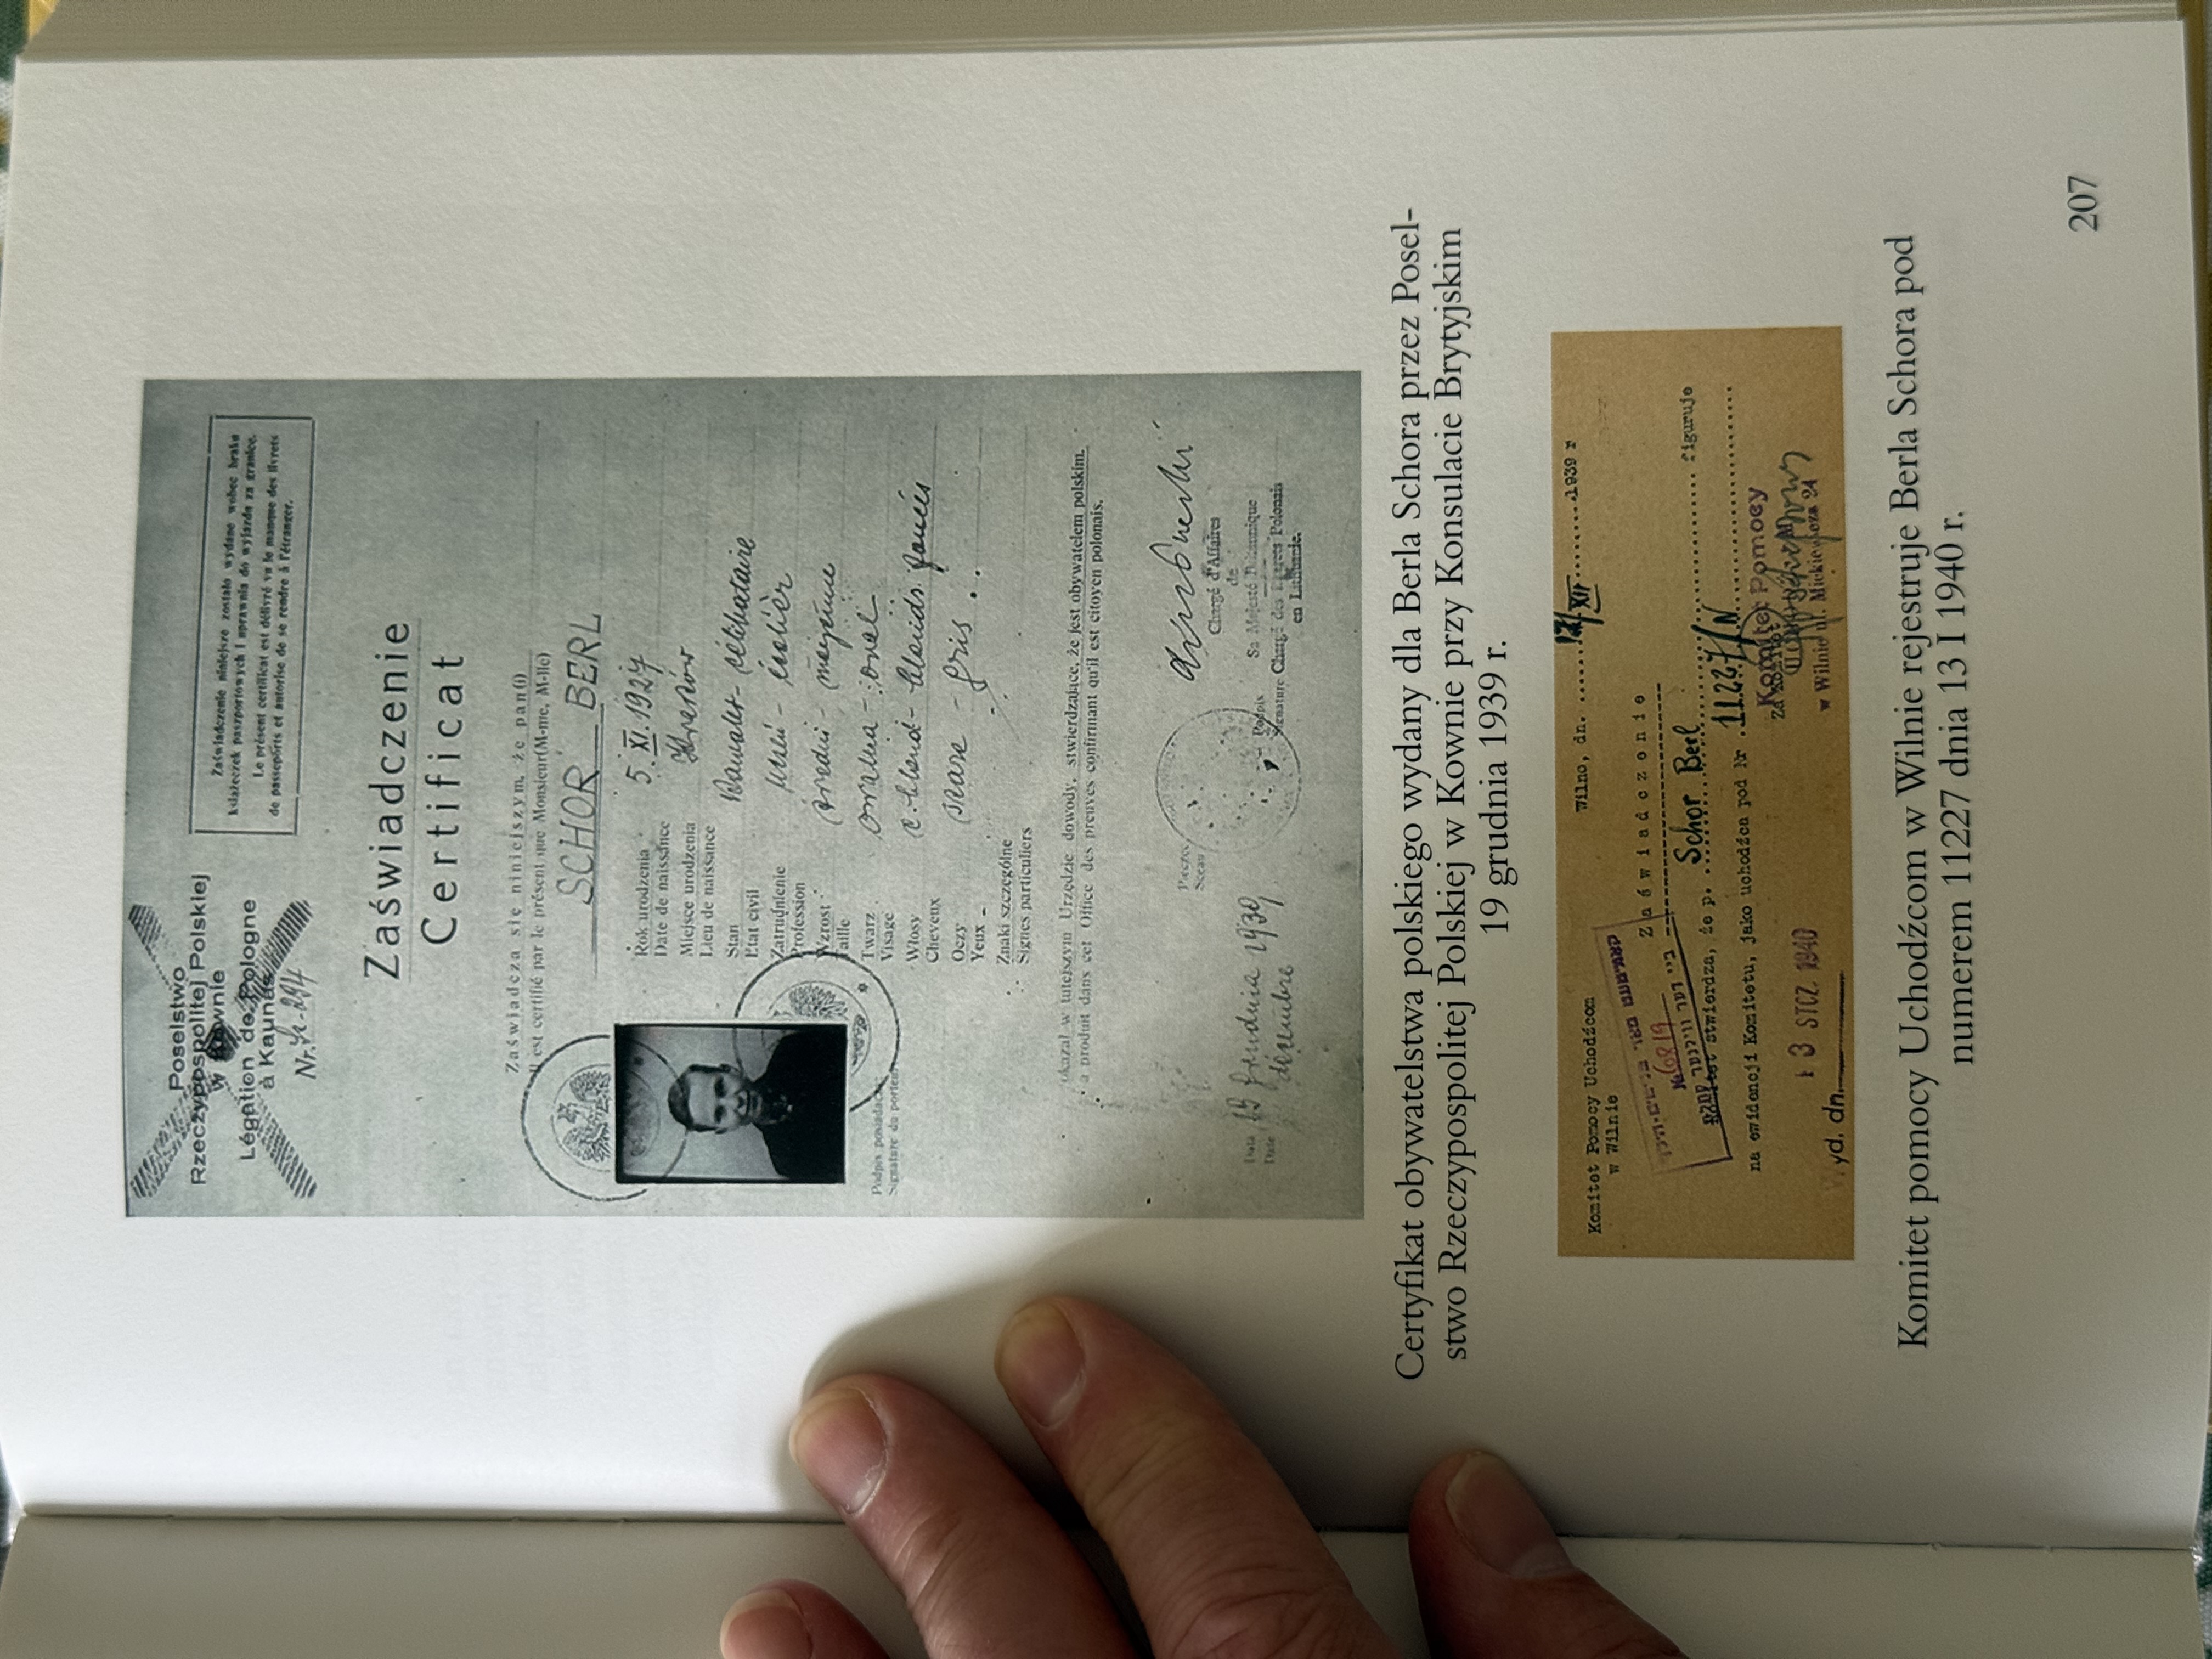 Poselstwo
Rzeczypospolitej Polskiej
w Kownie
Légation de Pologne
à Kaunas
Zaświadczenie niniejsze zostało wydane wobec braku
książeczek paszportowych i uprawnia do wyjazdu za granicę.
Le présent certificat est délivré vu le manque des livrets
de passeports et autorise de se rendre à l'étranger.
Zaświadczenie
Certificat
Zaświadcza się niniejszym, że pan(i)
Il est certifié par le présent que Monsieur(M-me, M-lle)
SCHOR BERL
Rok urodzenia 5.XI.1924
Date de naissance
Miejsce urodzenia
Lieu de naissance
Stan Kawaler - célibataire
Etat civil
Zatrudnienie uczeń - écolier
Profession
Wzrost średni - moyenne
Taille
Twarz owalna - oval
Visage
Włosy c. blond - blonds foncés
Cheveux
Oczy szare - gris
Yeux
Znaki szczególne
Signes particuliers
Podpis posiadacza
Signature du porteur
okazał w tutejszym Urzędzie dowody, stwierdzające, że jest obywatelem polskim.
a produit dans cet Office des preuves confirmant qu'il est citoyen polonais.
Pieczęć
Sceau
Data 19 grudnia 1939
Date décembre
Podpis
Signature
Chargé d'Affaires
de
Sa Majesté Britannique
Chargé des Polonais
en Lithuanie.
Certyfikat obywatelstwa polskiego wydany dla Berla Schora przez Posel-
stwo Rzeczypospolitej Polskiej w Kownie przy Konsulacie Brytyjskim
19 grudnia 1939 r.
Komitet Pomocy Uchodźcom
w Wilnie
Wilno, dn. XII 1939 r
Zaświadczenie
stwierdza, że p. Schor Berl figuruje
na ewidencji Komitetu, jako uchodźca pod Nr 11227/N
Za Komitet
Komitet Pomocy
w Wilnie ul. Mickiewicza 24
13 STCZ. 1940
Wyd. dn.
Komitet pomocy Uchodźcom w Wilnie rejestruje Berla Schora pod
numerem 11227 dnia 13 I 1940 r.
207